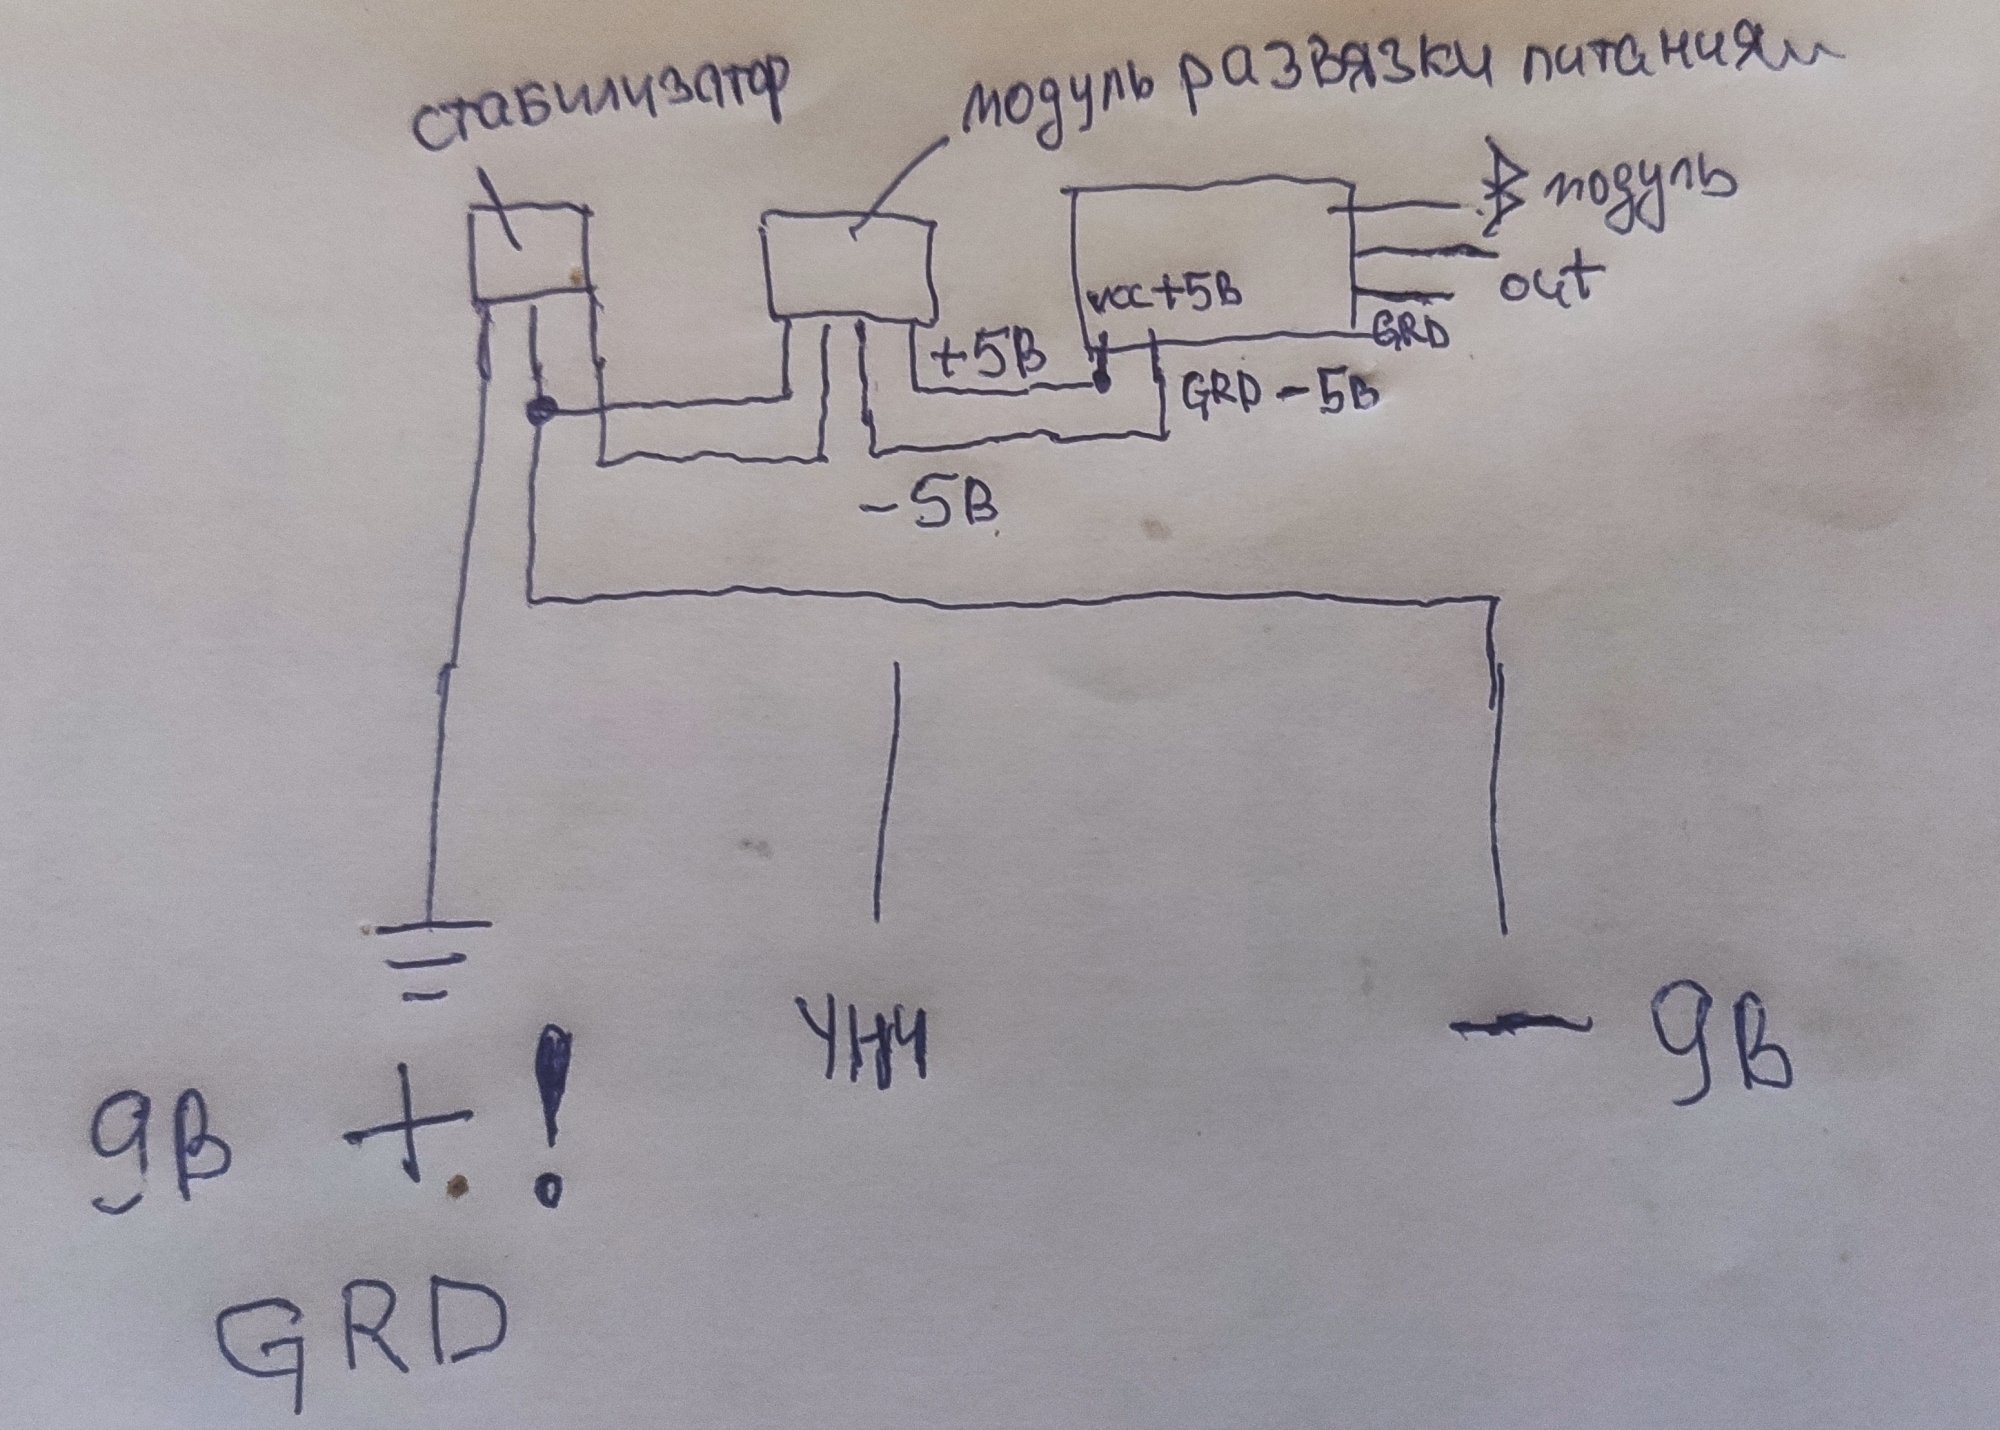 стабилизатор
модуль развязки питания
модуль
out
GRD
vcc+5В
+5В
GRD -5В
-5В
УНЧ
- 9В
9В + !
GRD